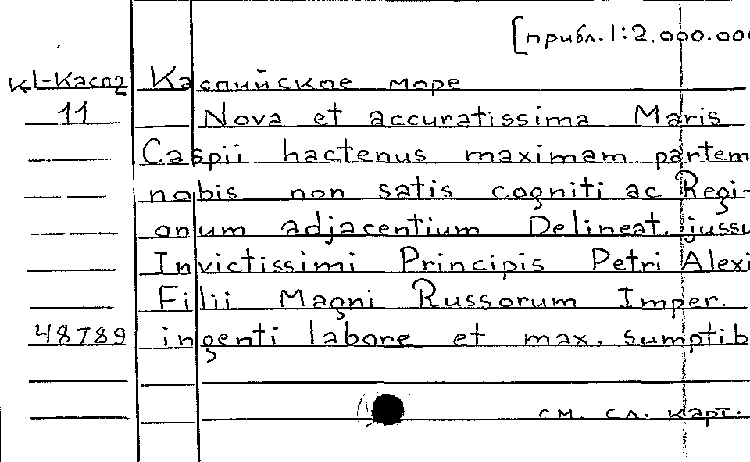 [прибл. 1:2.000.000
К1-Касп2 Каспийское море
11 Nova et accuratissima Maris
Caspii hactenus maximam partem
nobis non satis cogniti ac Regi-
onum adjacentium Delineat. jussu
Invictissimi Principis Petri Alexi
Filii Magni Russorum Imper.
48789 ingenti labore et max. sumptib
см. сл. карт.